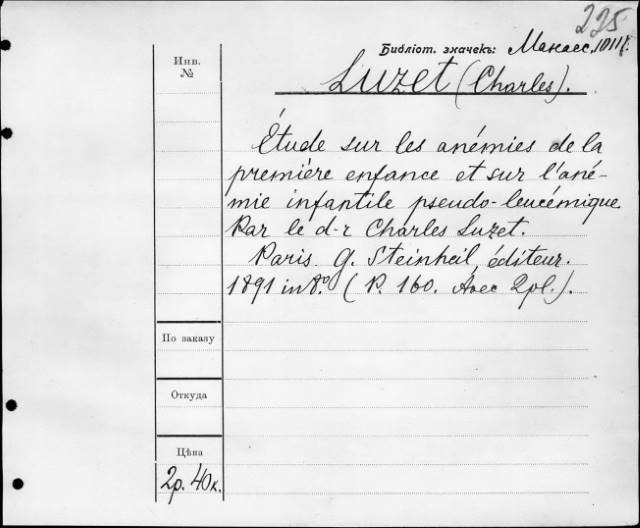 225
Библіот. значекъ: Манасс. 1011 г.
Инв.
№
Luzet (Charles).
Étude sur les anémies de la
première enfance et sur l'ané-
mie infantile pseudo-leucémique
Par le d-r Charles Luzet.
Paris. G. Steinheil, éditeur.
1891 in 8.º (P. 160. Avec 2pl.).
По заказу
Откуда
Цѣна
2р. 40к.